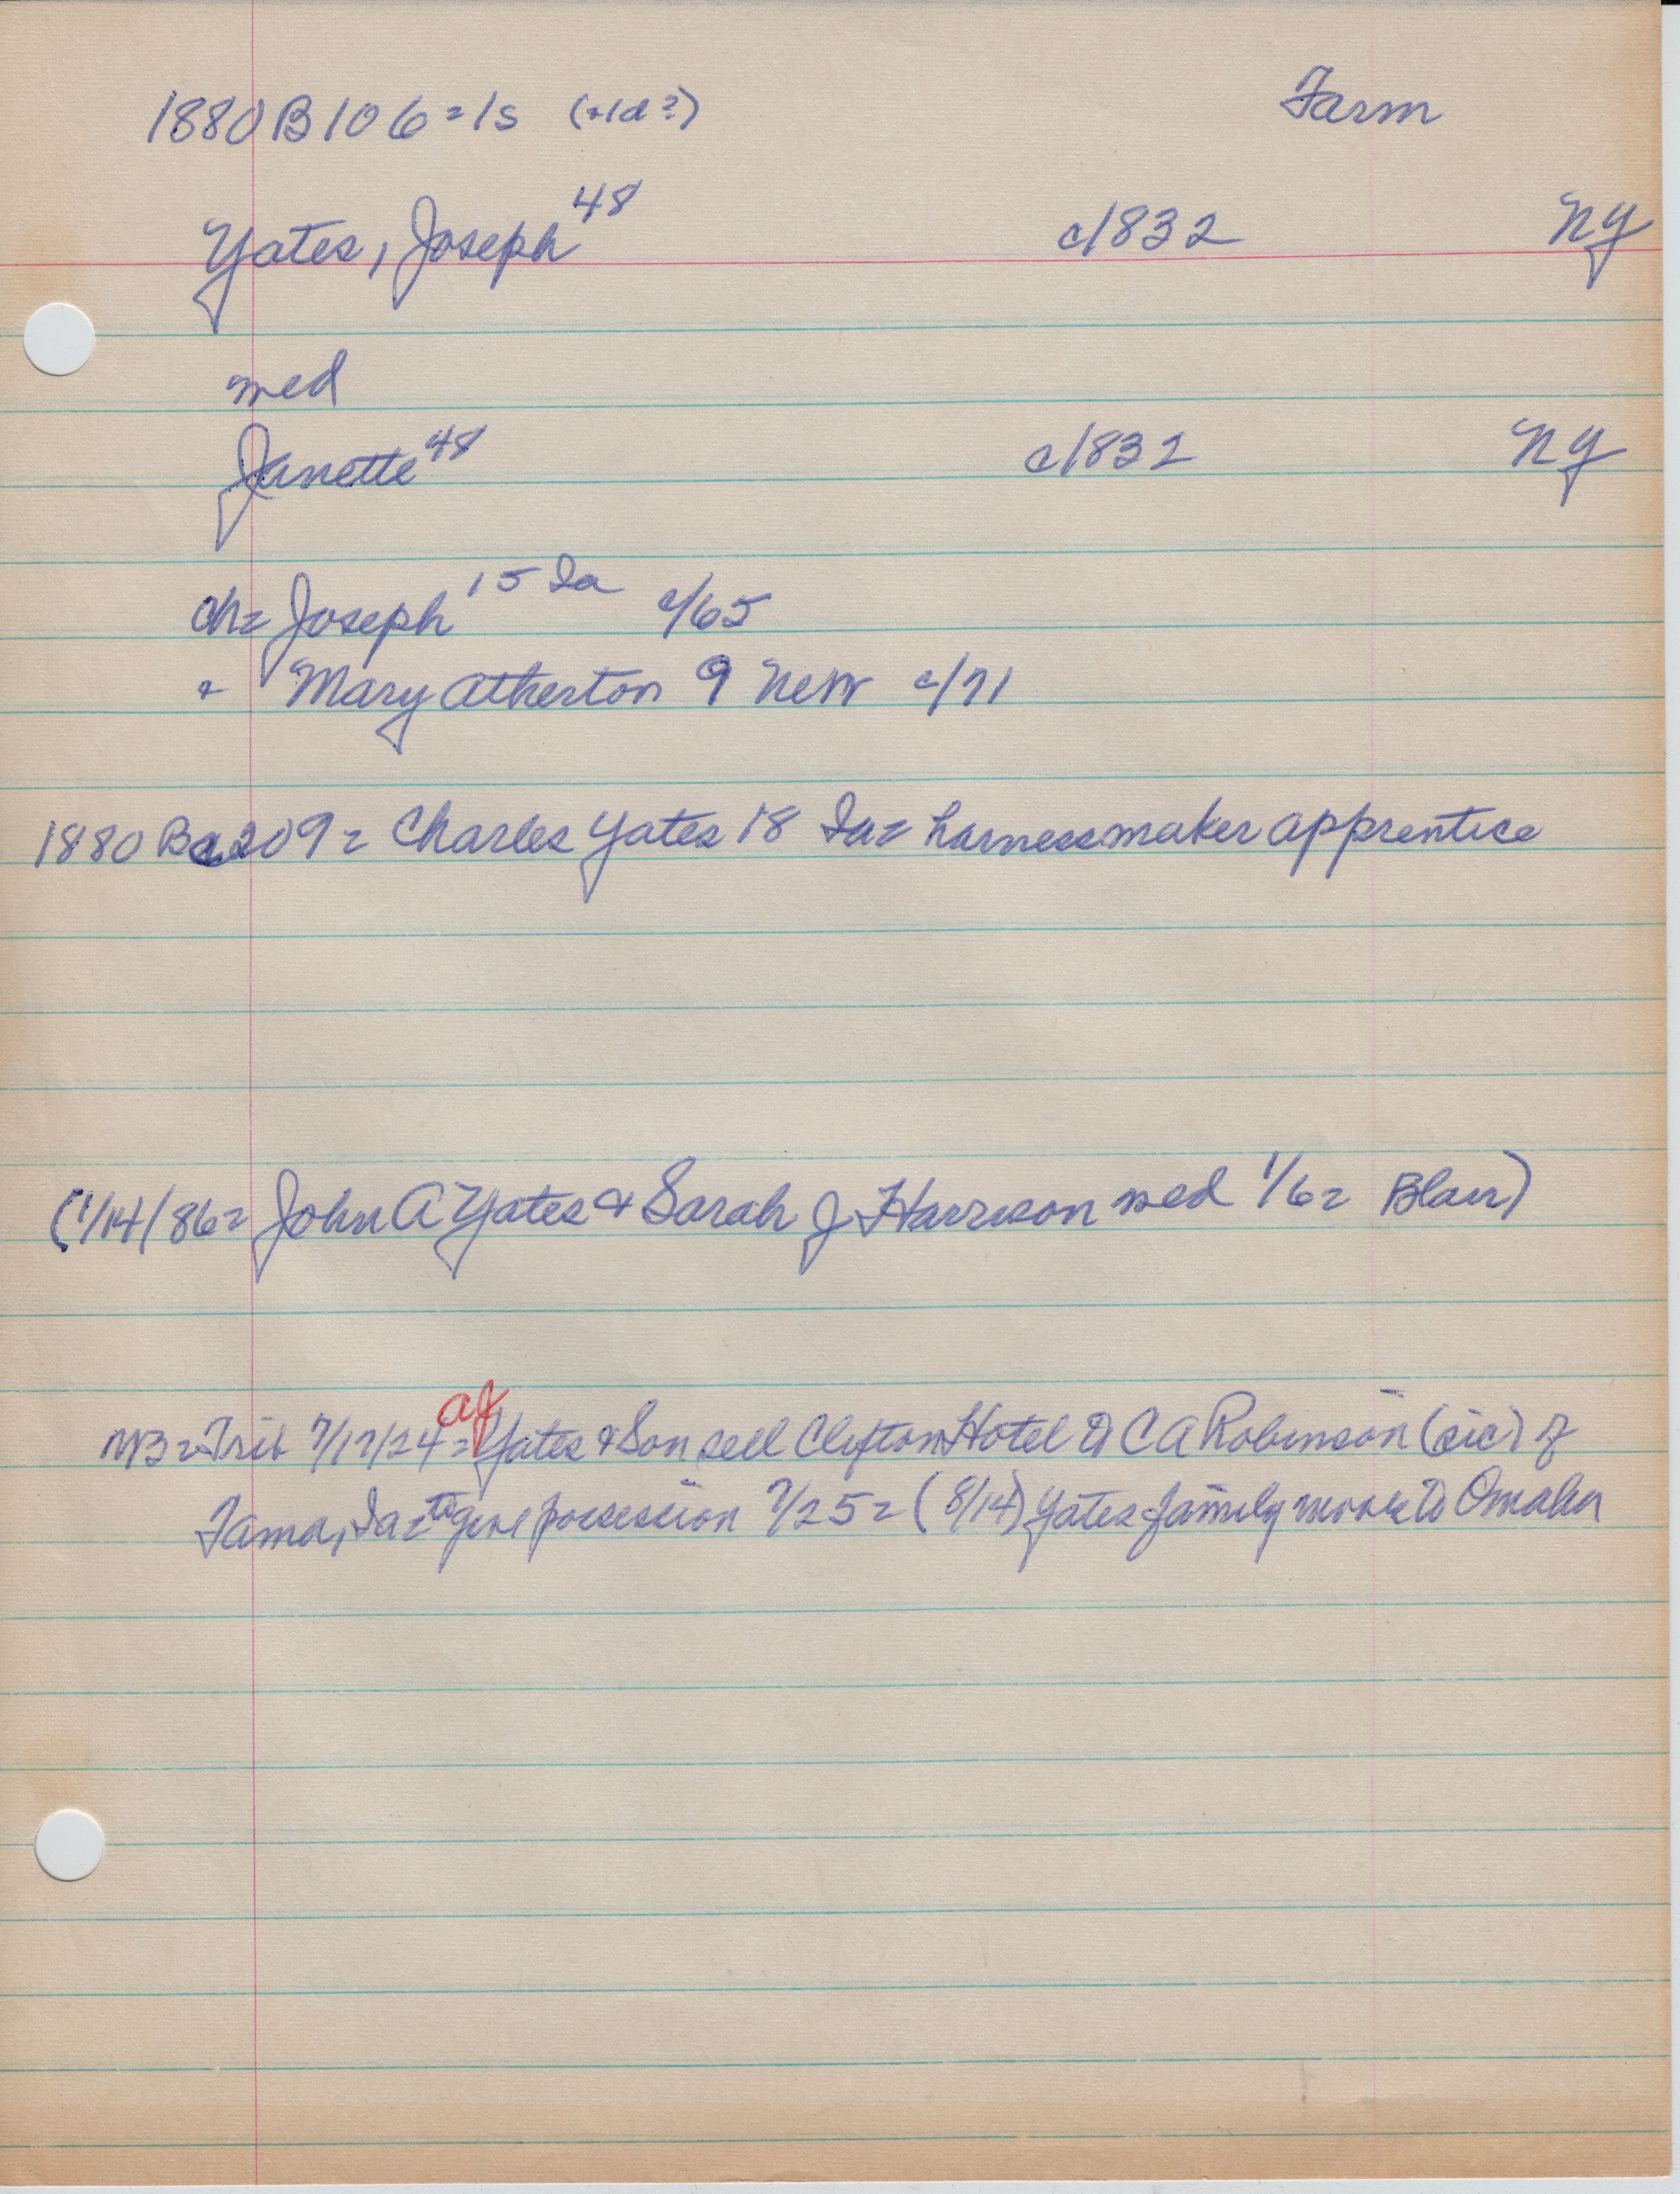 1880 B 106 = 1s (+1d?) Farm
Yates, Joseph 48 c/1832 NY
med
Janette 48 c/1832 NY
ch= Joseph 15 Ia c/65
+ Mary Atherton 9 c/71
1880 209 = Charles Yates 18 Ia = harnessmaker apprentice
(1/14/86 = John A Yates + Sarah J Harrison med 1/6 = Blair)
AJ
= Trib 7/17/24 = Yates + Son sell Clifton Hotel to C A Robinson (sic) of
Tama, Ia = to give possession 7/25 = (8/14) Yates family move to Omaha